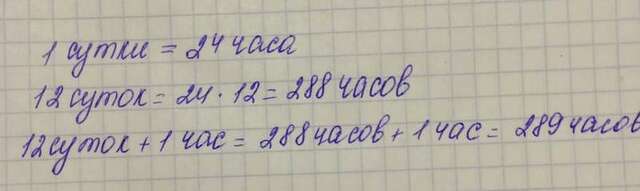 1 сутки = 24 часа
12 суток = 24 · 12 = 288 часов
12 суток + 1 час = 288 часов + 1 час = 289 часов